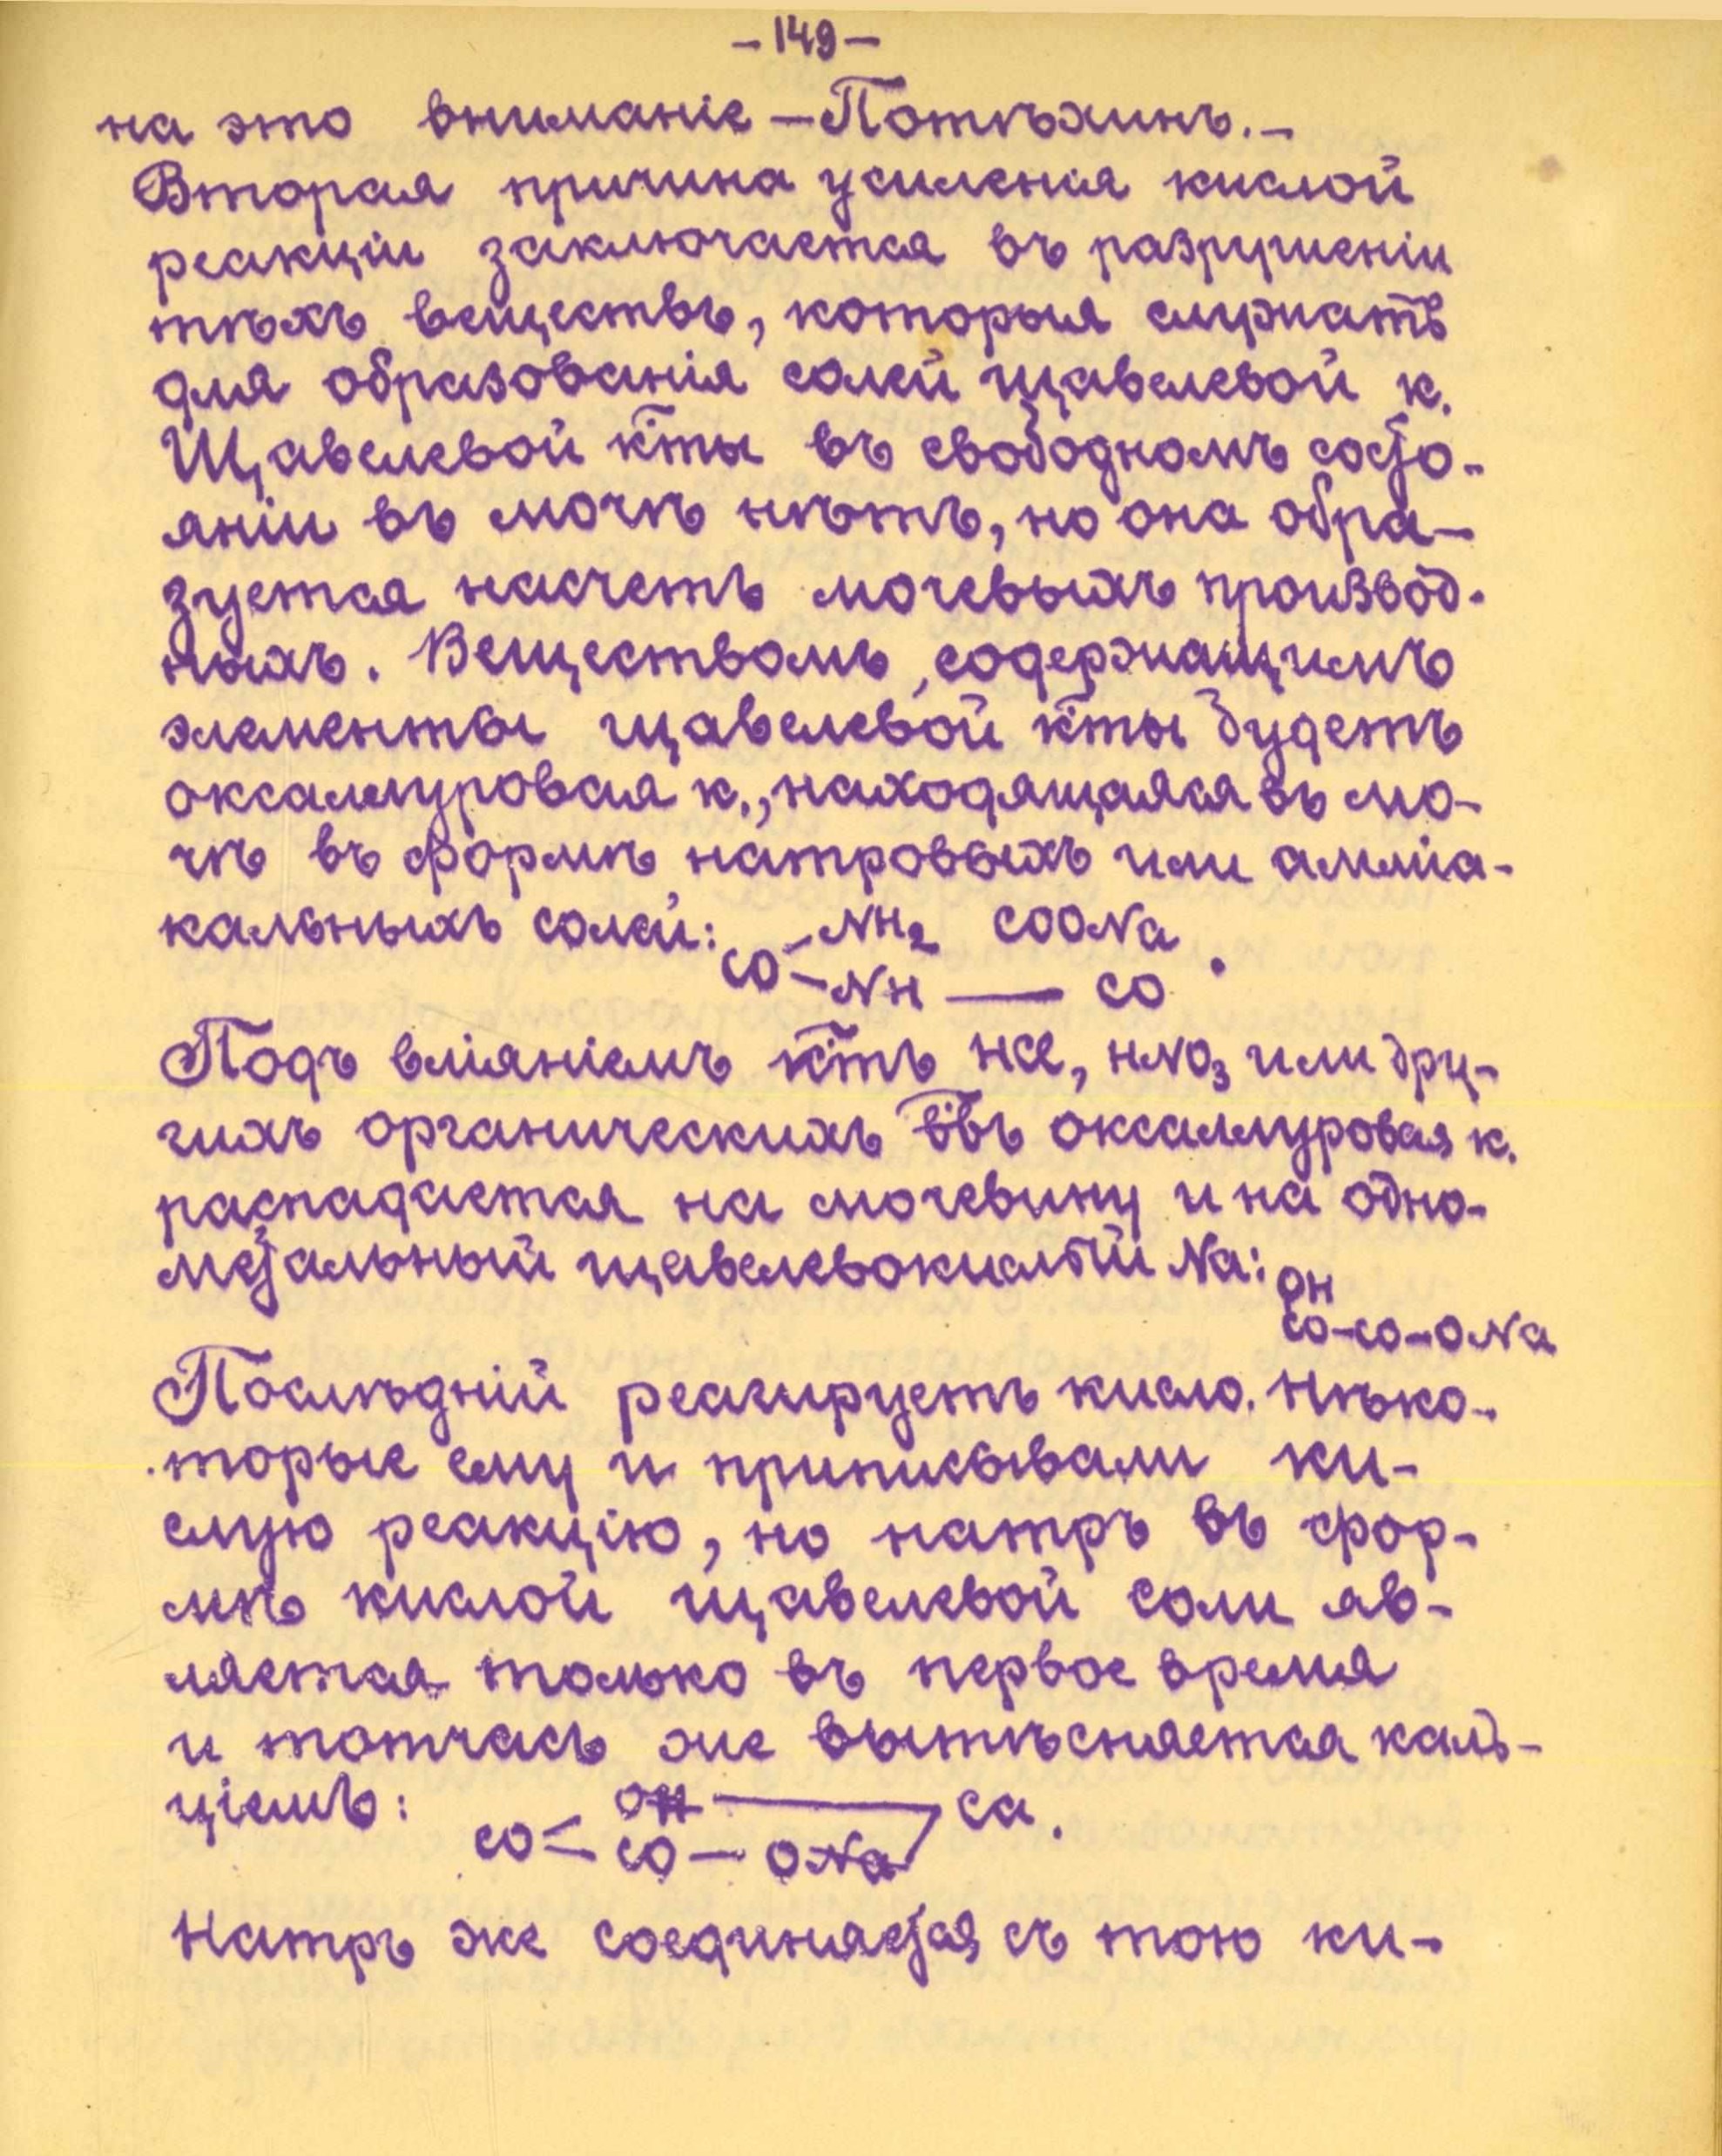 -149-
на это вниманіе - Потѣхинъ.-
Вторая причина усиленія кислой
реакціи заключается въ разрушеніи
тѣхъ веществъ, которыя служатъ
для образованія солей щавелевой к.
Щавелевой к-ты въ свободномъ состо-
яніи въ мочѣ нѣтъ, но она обра-
зуется насчетъ мочевыхъ производ-
ныхъ. Веществомъ, содержащимъ
элементы щавелевой к-ты будетъ
оксаллуровая к., находящаяся въ мо-
чѣ въ формѣ натровыхъ или амміа-
кальныхъ солей: NH₂ COONa
CO NH — CO .
Подъ вліяніемъ к-тъ HCl, HNO₃ или дру-
гихъ органическихъ в-въ оксаллуровая к.
распадается на мочевину и на одно-
метальный щавелевокислый Na: OH
CO-CO-ONa
Послѣдній реагируетъ кисло. Нѣко-
торые ему и приписывали ки-
слую реакцію, но натръ въ фор-
мѣ кислой щавелевой соли яв-
ляется только въ первое время
и тотчасъ же вытѣсняется каль-
ціемъ: OH — Ca.
CO < CO - ONa
Натръ же соединяется съ тою ки-